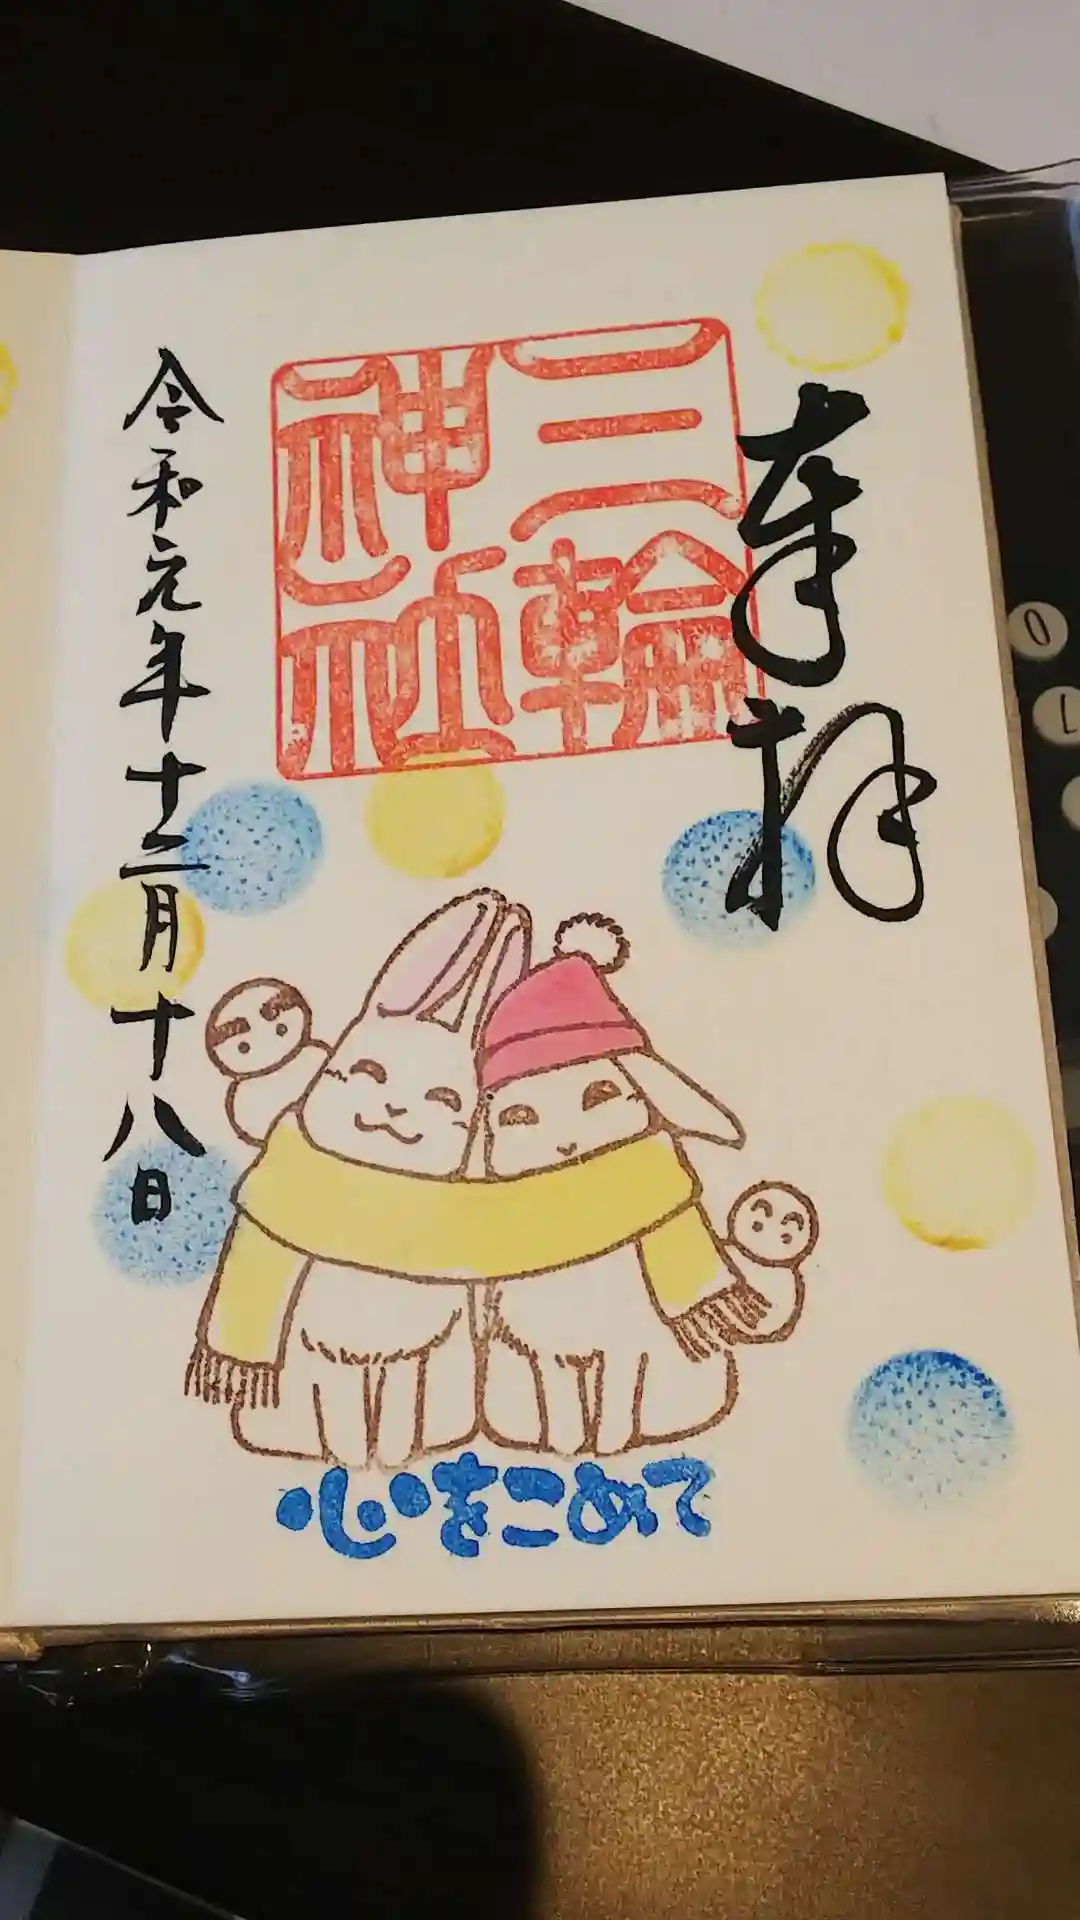 奉拝
三輪
神社
令和元年十二月十八日
心をこめて
O
L